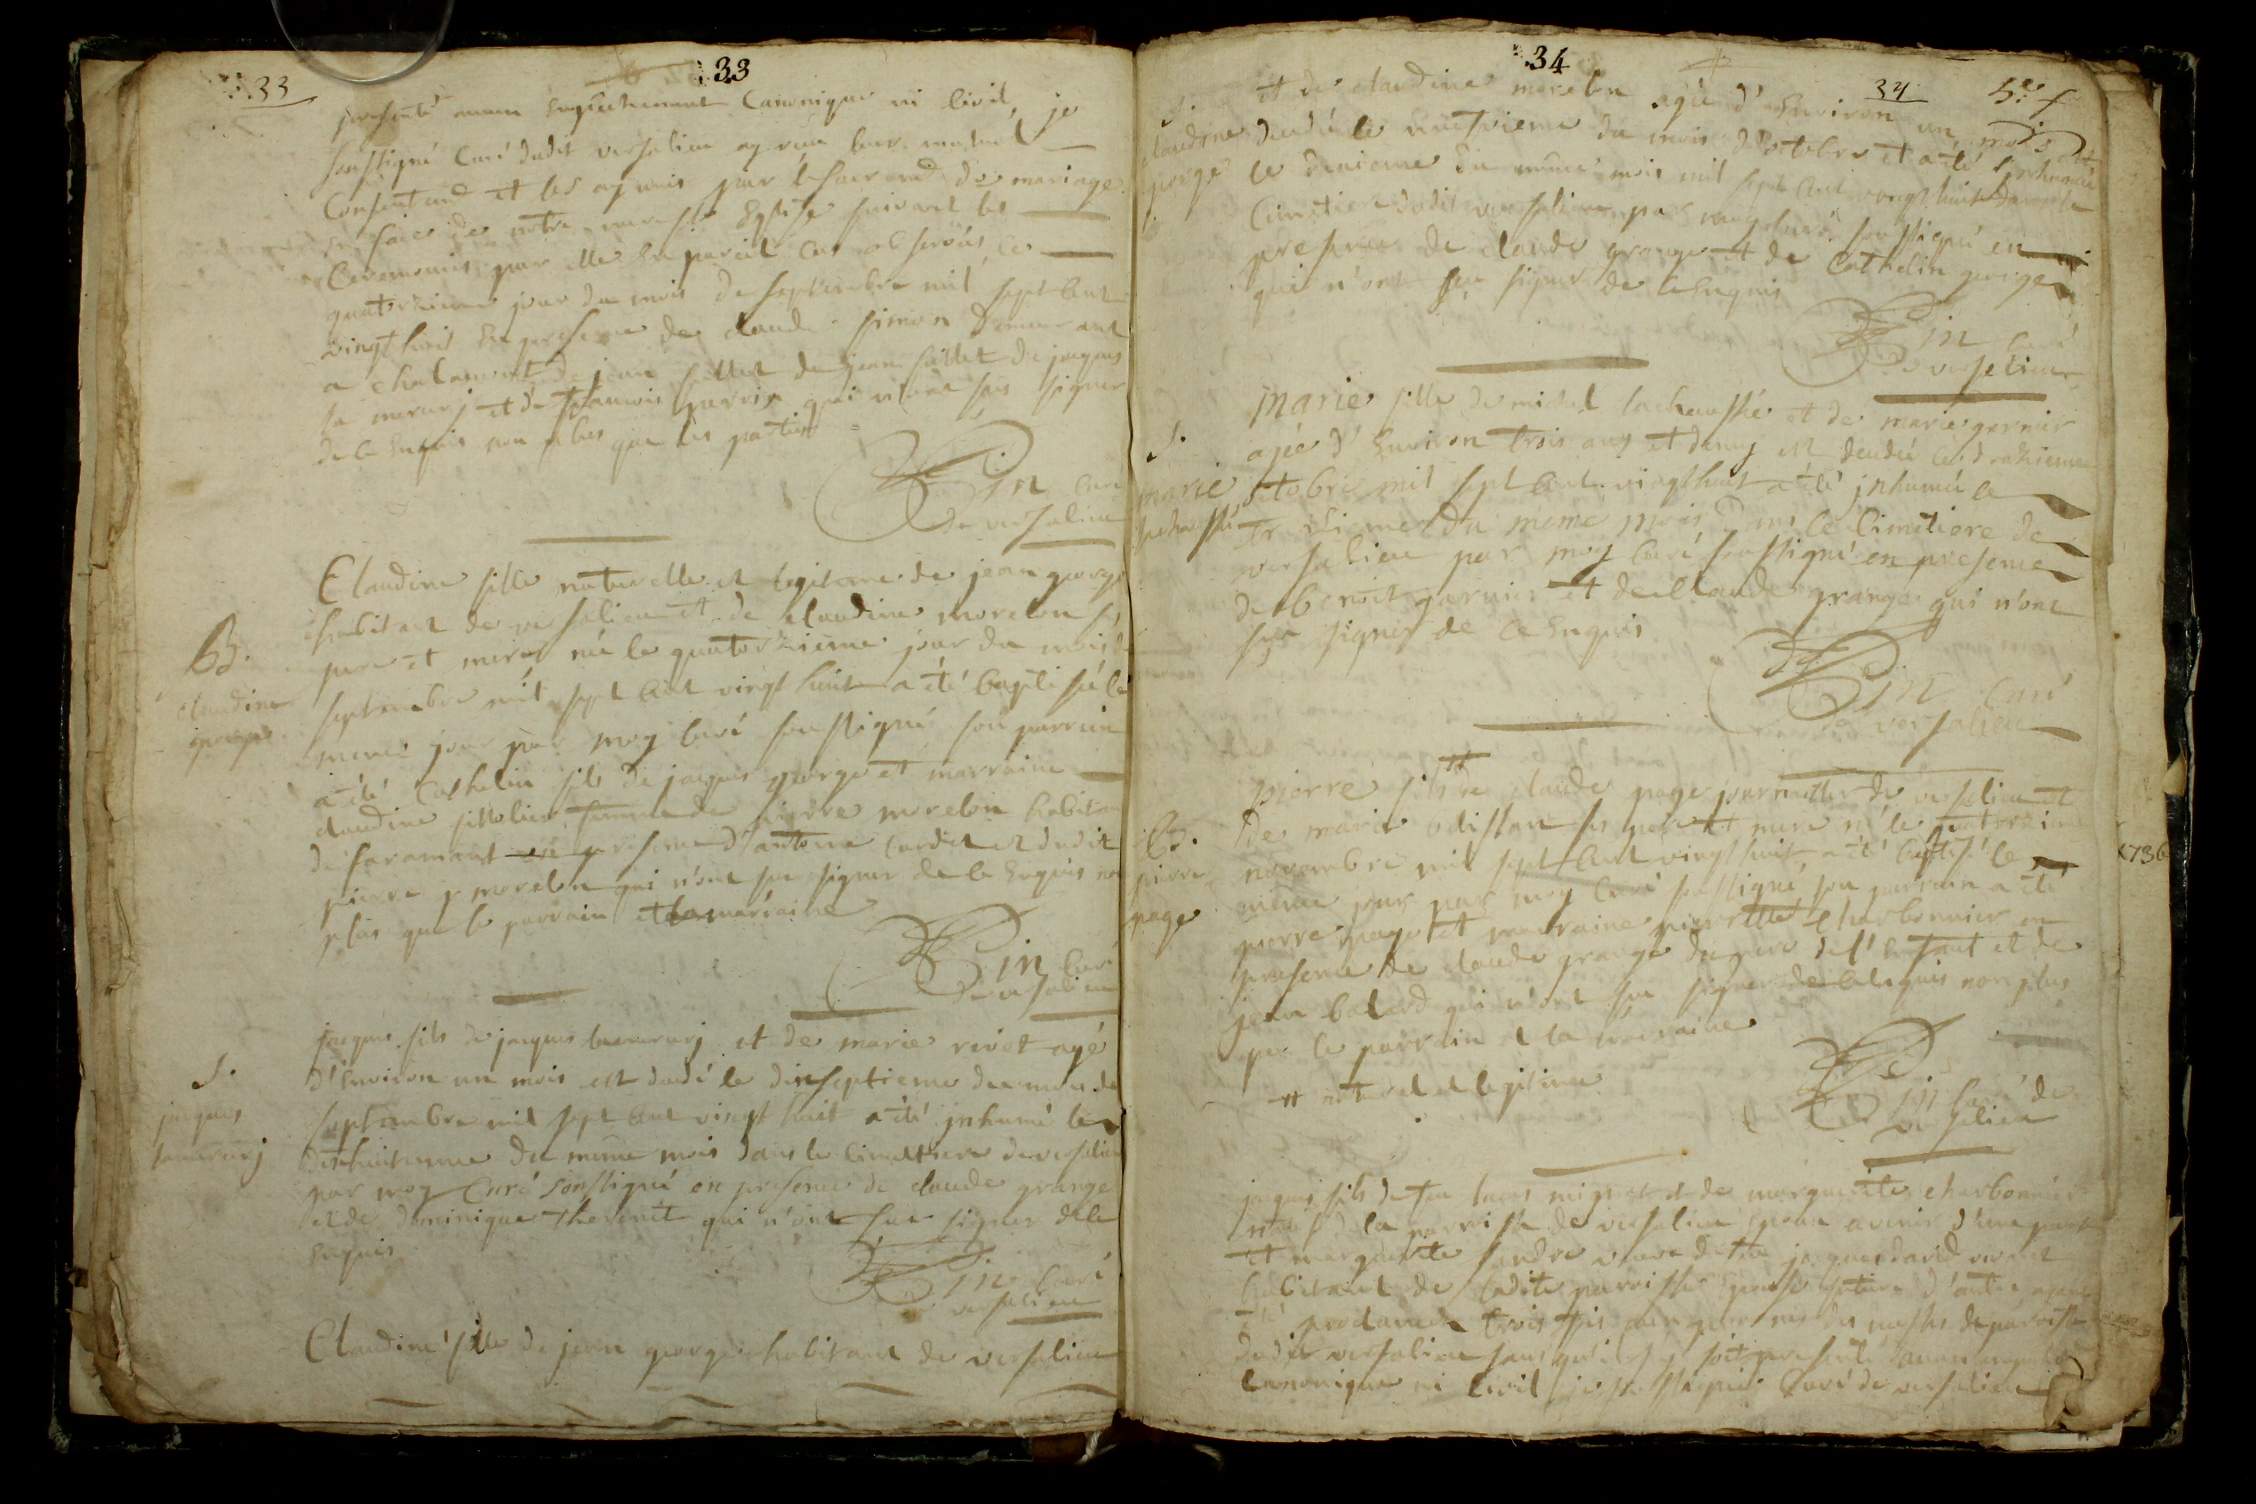 33
33
presenté aucun Empechement Canonique ni Civil, je
soussigné Curé dudit versalieu ay receu leur mutuel
Consentemt et les ay unis par le sacremt de mariage
En face de notre mere ste Eglise suivant les
Ceremonies par elle En pareil Cas observées, ce
quatorzieme jour du mois de septembre mil sept Cent
vingt huit En presence de claude simon demeurant
a chalamont de jean fillet de jean fillet de jacques
la mercurj et de francois qui n'ont sçu signer
de ce Enquis non plus que les parties
Gin Curé
de versalieu
B.
claudine
george
Claudine fille naturelle et legitime de jean george
habitant de versalieu et de claudine morelon ses
pere et mere née le quatorzieme jour du mois de
septembre mil sept Cent vingt huit a été baptisée le
meme jour par moy Curé soussigné son parrain
a été Cathelin fils de jacques george et marraine
claudine femme de pierre morelon habitant
de faramant en presence d'antoine Cordet et dudit
pierre morelon qui n'ont sçu signer de ce Enquis non
plus que le parrain et la marraine
Gin Curé
de versalieu
S.
jacques
lamercurj
jacques fils de jacques lamercurj et de marie rivot agé
d'Environ un mois est decedé le dixseptieme du mois de
septembre mil sept Cent vingt huit a été inhumé le
dixhuitieme du meme mois dans le Cimettiere de versalieu
par moy Curé soussigné en presence de claude grange
et de dominique thevenet qui n'ont sçu signer de ce
Enquis
Gin Curé
versalieu
Claudine fille de jean george habitant de versalieu
34
34
S.
claudine
george
et de claudine morelon agée d'Environ un mois est
decedée le neufvieme du mois d'octobre et a été inhumée
le dixieme du meme mois mil sept Cent vingt huit dans le
Cimetiere dudit versalieu par moy Curé soussigné en
presence de claude grange et de Cathelin george
qui n'ont sçu signer de ce Enquis
Gin Curé
de versalieu
S.
marie
lachaussée
Marie fille de michel lachaussée et de marie garnier
agée d'Environ trois ans et demy est decedée le douzieme
octobre mil sept Cent vingthuit a été jnhumée le
treizieme du meme mois dans le Cimetiere de
versalieu par moy Curé soussigné en presence
de benoit garnier et de Claude grange qui n'ont
sçu signer de ce Enquis
Gin Curé
de versalieu
B.
pierre
page
pierre fils # de claude page de versalieu et
De marie odissan ses pere et mere né le quatorzieme
novembre mil sept Cent vingt huit, a été baptisé le
meme jour par moy Curé soussigné son parrain a été
pierre page et marraine pierrette charbonnier en
presence de claude grange du pere de l'Enfant et de
jean balard qui n'ont sçu signer de ce Enquis non plus
que le parrain et la marraine
# naturel et legitime
Gin Curé de
versalieu
1736
jacques fils de feu migret et de marguerite charbonnier
natif de la parroisse de versalieu Epoux avenir d'une part
et marguerite veuve de feu jacques david vivant
habitant de ladite parroisse Epouse future d'autre ayant
été proclamés trois fois aux prones des messes de parroisse
dudit versalieu sans qu'il se soit presenté aucun
Canonique ni Civil, je soussigné Curé de versalieu